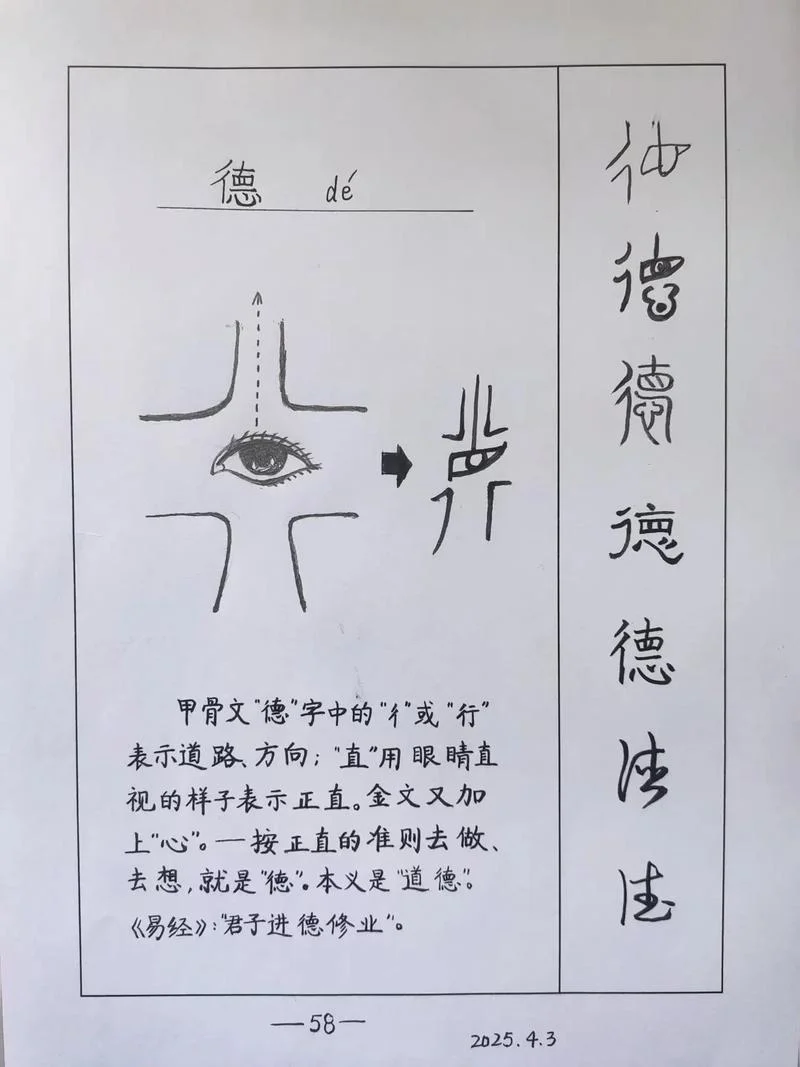 德 dé
甲骨文“德”字中的“彳”或“行”
表示道路、方向；“直”用眼睛直
视的样子表示正直。金文又加
上“心”。—按正直的准则去做、
去想，就是“德”。本义是“道德”。
《易经》：“君子进德修业”。
德
德
德
德
德
德
德
—58—
2025.4.3